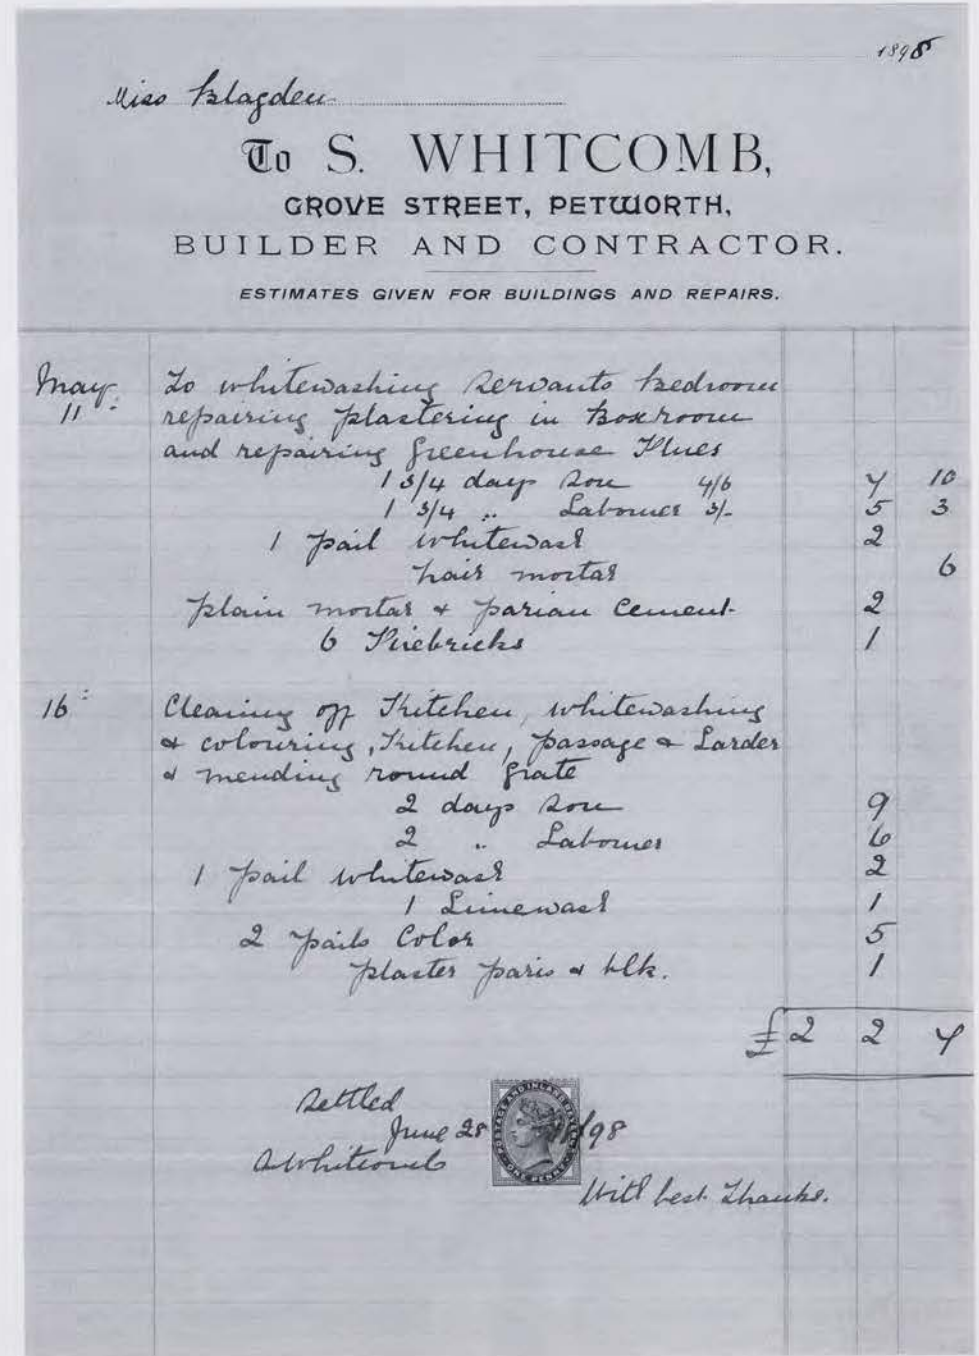 1898
Miss Blagden
To S. WHITCOMB,
GROVE STREET, PETWORTH,
BUILDER AND CONTRACTOR.
ESTIMATES GIVEN FOR BUILDINGS AND REPAIRS.
May 11 To whitewashing Servants bedroom
repairing plastering in Boxroom
and repairing Greenhouse Flues
1 3/4 days Son 4/6 7 10
1 3/4 " Labourer 3/- 5 3
1 pail whitewash 2
hair mortar 6
plain mortar & parian Cement 2
6 Firebricks 1
16 Cleaning off Kitchen, whitewashing
& colouring, Kitchen, passage & Larder
& mending round grate
2 days Son 9
2 " Labourer 6
1 pail whitewash 2
1 Limewash 1
2 pails Color 5
plaster paris & blk. 1
£2 2 7
Settled
June 28 /98
S Whitcomb
With best Thanks.
POSTAGE AND INLAND REVENUE
ONE PENNY